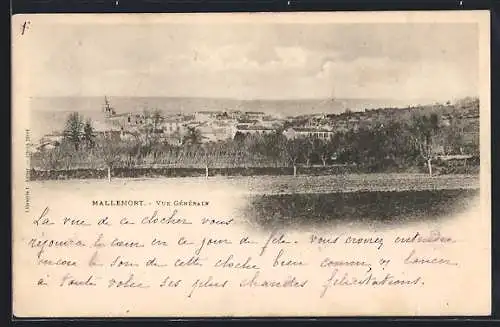 MALLEMORT. - VUE GÉNÉRALE
La vue de ce clocher vous
réjouira le cœur en ce jour de fête. Vous croirez entendre
encore le son de cette cloche bien connue, et lancer
à toute volée ses plus grandes félicitations.